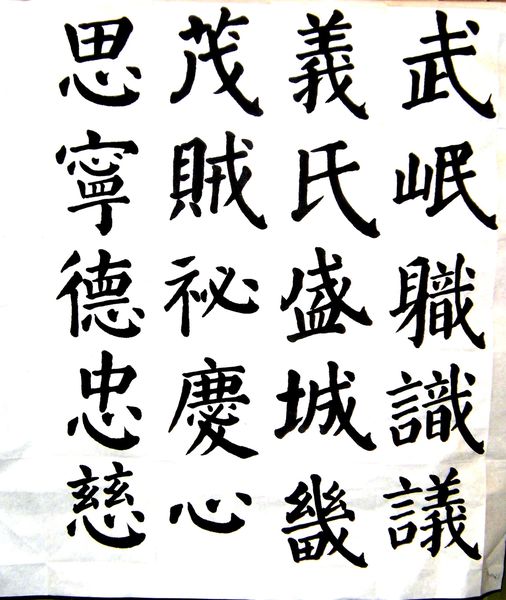 武岷職識議
義氏盛城畿
茂賊祕慶心
思寧德忠慈